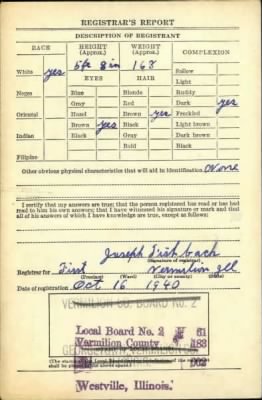 REGISTRAR'S REPORT
DESCRIPTION OF REGISTRANT
RACE HEIGHT (Approx.) WEIGHT (Approx.) COMPLEXION
White yes 5ft 8in 168 Sallow
EYES HAIR Light
Negro Blue Blonde Ruddy
Gray Red Dark yes
Oriental Hazel Brown yes Freckled
Brown yes Black Light brown
Indian Black Gray Dark brown
Bald Black
Filipino
Other obvious physical characteristics that will aid in identification None
I certify that my answers are true; that the person registered has read or has had
read to him his own answers; that I have witnessed his signature or mark and that
all of his answers of which I have knowledge are true, except as follows:
Joseph
(Signature of registrar)
Registrar for First Vermilion Ill
(Precinct) (Ward) (City or county) (State)
Date of registration Oct 16 1940
VERMILION CO. BOARD NO. 2
Local Board No. 2 61
Vermilion County 183
GEORGETOWN, VERMILION CO.
002
Westville, Illinois.